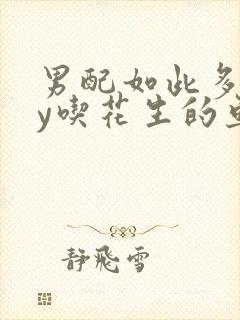 男配如此多
y喫花生的
静飛雪